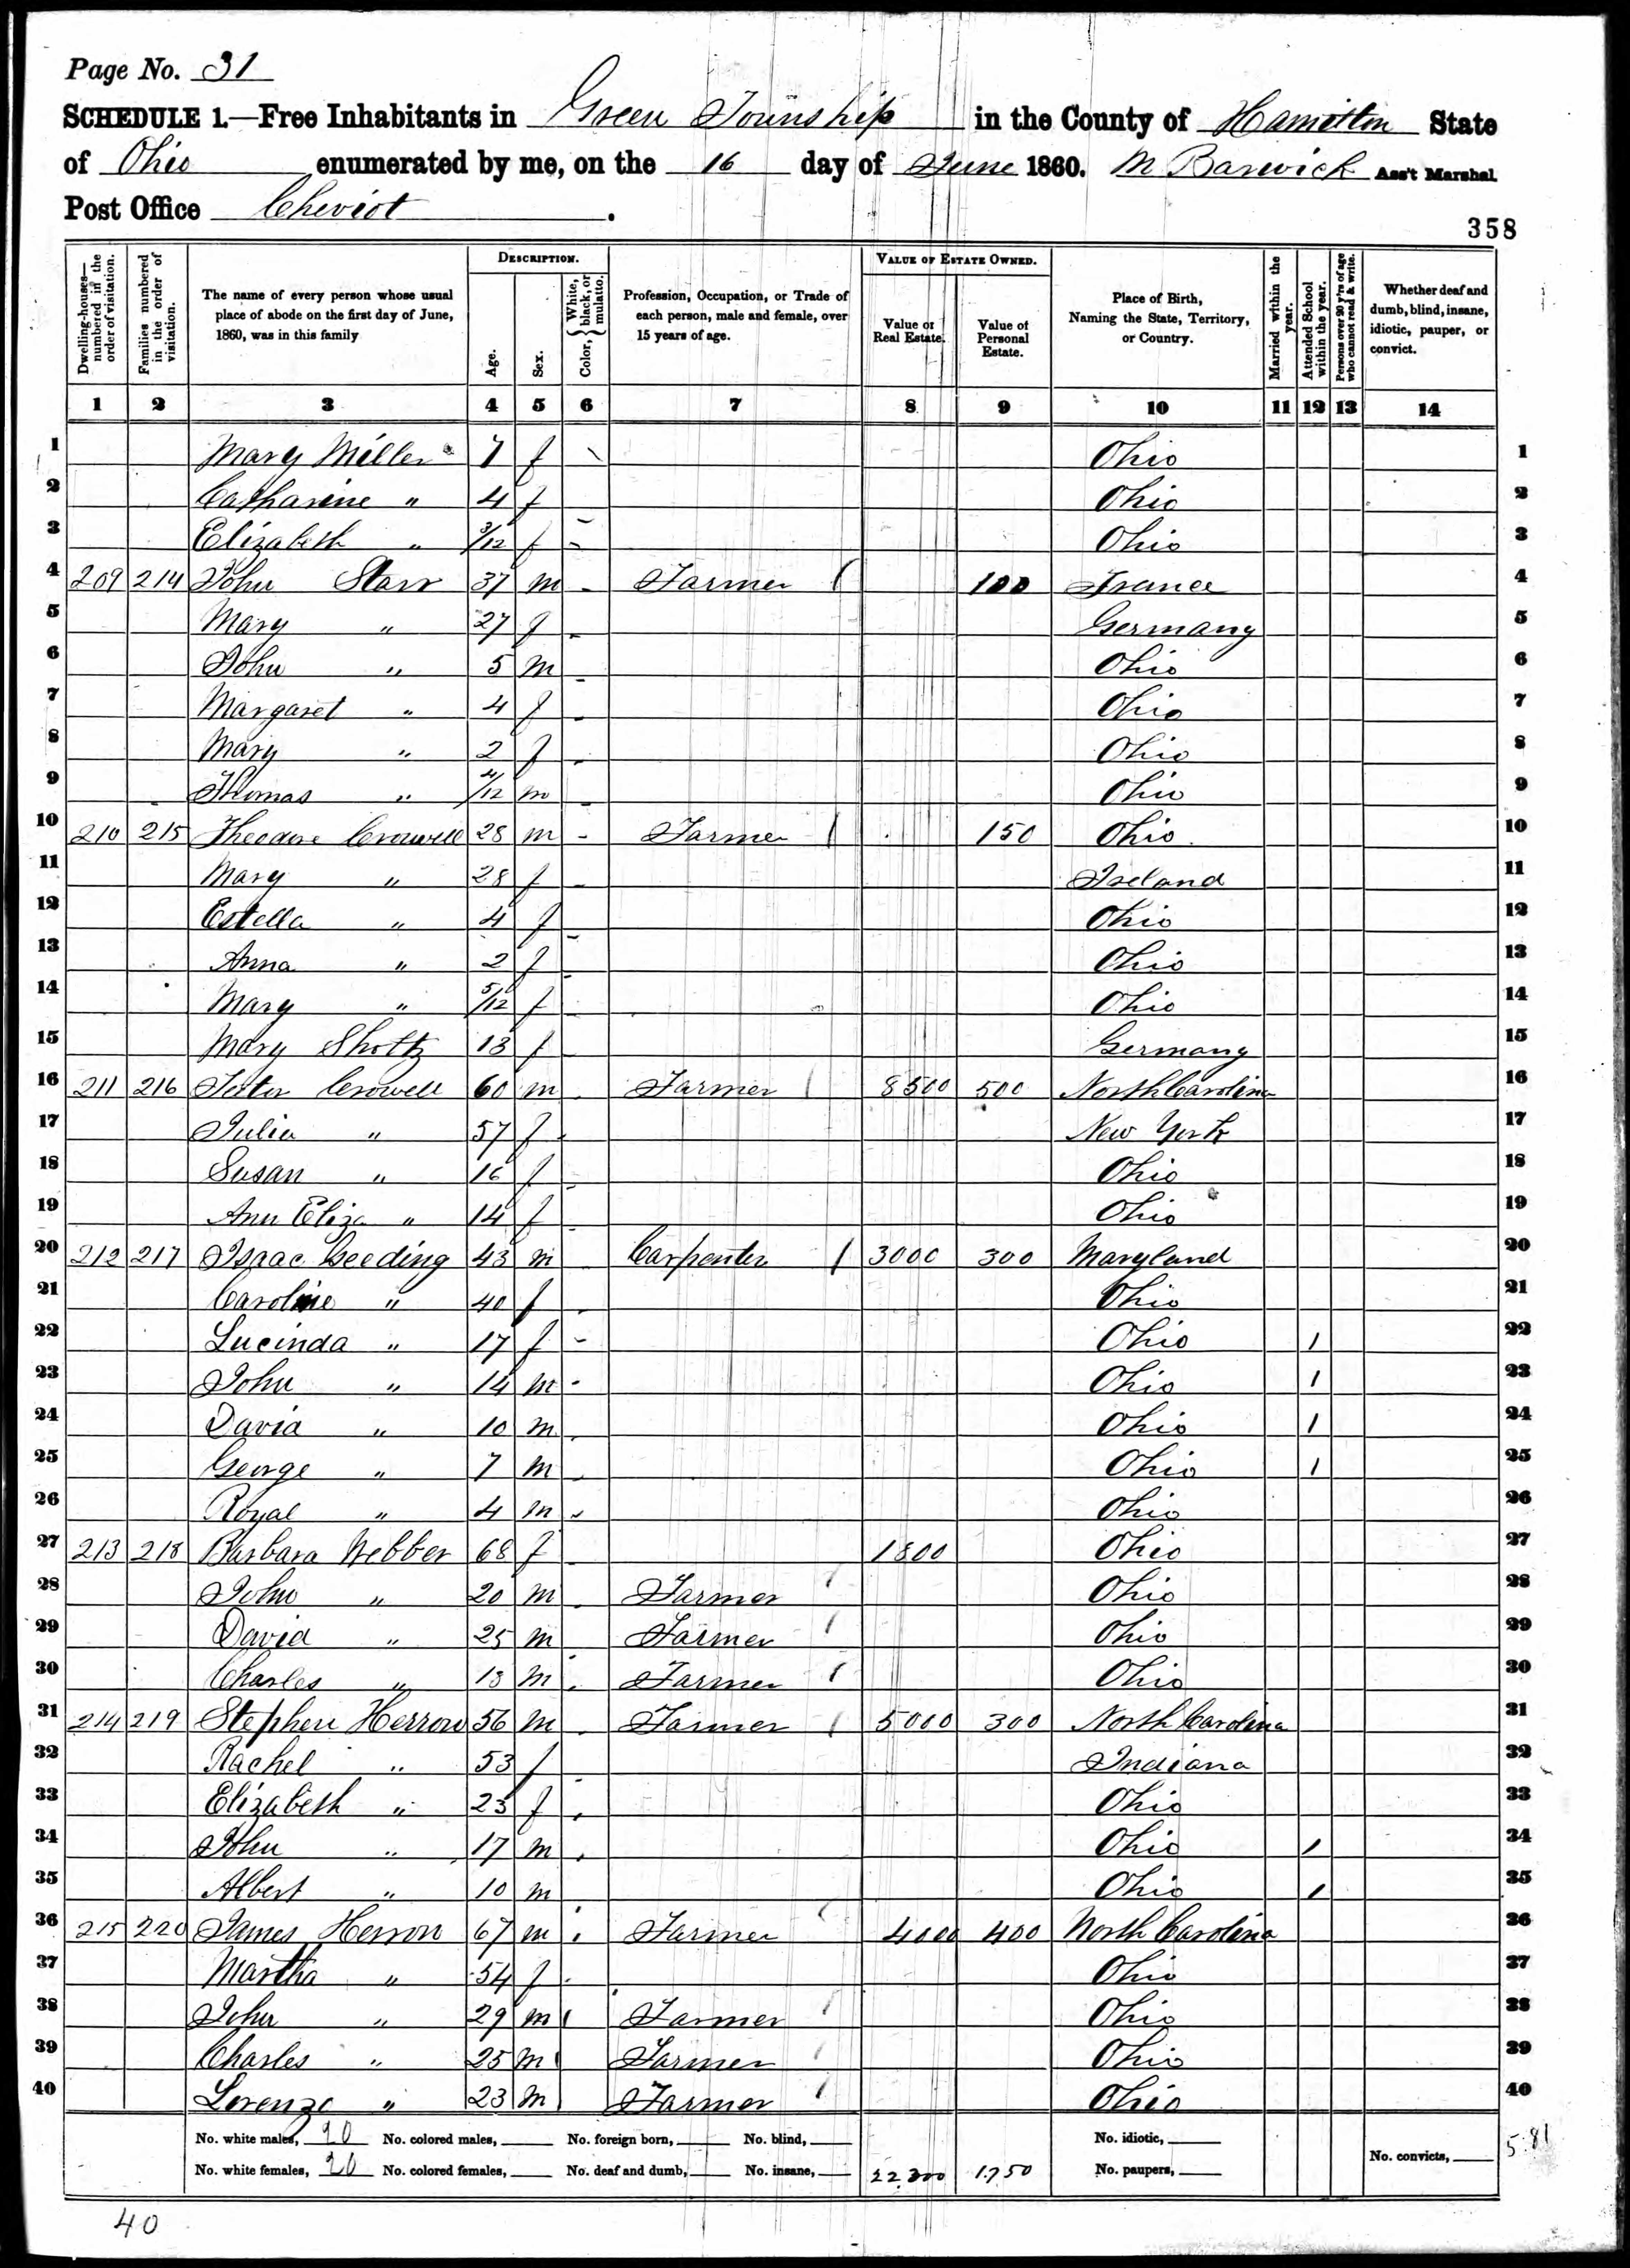 Page No. 31
SCHEDULE 1.—Free Inhabitants in Green Township in the County of Hamilton State
of Ohio enumerated by me, on the 16 day of June 1860. M Barwick Ass't Marshal.
Post Office Cheviot.
358
DESCRIPTION. VALUE OF ESTATE OWNED.
Dwelling-houses—numbered in the order of visitation. Families numbered in the order of visitation. The name of every person whose usual place of abode on the first day of June, 1860, was in this family Age. Sex. Color, { White, black, or mulatto. Profession, Occupation, or Trade of each person, male and female, over 15 years of age. Value of Real Estate. Value of Personal Estate. Place of Birth, Naming the State, Territory, or Country. Married within the year. Attended School within the year. Persons over 20 y'rs of age who cannot read & write. Whether deaf and dumb, blind, insane, idiotic, pauper, or convict.
1 2 3 4 5 6 7 8 9 10 11 12 13 14
1 Mary Miller 7 f Ohio 1
2 Catharine " 4 f Ohio 2
3 Elizabeth " 3/12 f Ohio 3
4 209 214 John Starr 37 m Farmer 100 France 4
5 Mary " 27 f Germany 5
6 John " 5 m Ohio 6
7 Margaret " 4 f Ohio 7
8 Mary " 2 f Ohio 8
9 Thomas " 4/12 m Ohio 9
10 210 215 Theodore Crowell 28 m Farmer 150 Ohio 10
11 Mary " 28 f Ireland 11
12 Estella " 4 f Ohio 12
13 Anna " 2 f Ohio 13
14 Mary " 5/12 f Ohio 14
15 Mary Shottz 13 f Germany 15
16 211 216 Crowell 60 m Farmer 8500 500 North Carolina 16
17 Julia " 57 f New York 17
18 Susan " 16 f Ohio 18
19 Ann Eliza " 14 f Ohio 19
20 212 217 Isaac Geeding 43 m Carpenter 3000 300 Maryland 20
21 Caroline " 40 f Ohio 21
22 Lucinda " 17 f Ohio 1 22
23 John " 14 m Ohio 1 23
24 David " 10 m Ohio 1 24
25 George " 7 m Ohio 1 25
26 Royal " 4 m Ohio 26
27 213 218 Barbara Webber 68 f 1800 Ohio 27
28 John " 20 m Farmer Ohio 28
29 David " 25 m Farmer Ohio 29
30 Charles " 13 m Farmer Ohio 30
31 214 219 Stephen Herron 56 m Farmer 5000 300 North Carolina 31
32 Rachel " 53 f Indiana 32
33 Elizabeth " 23 f Ohio 33
34 John " 17 m Ohio 1 34
35 Albert " 10 m Ohio 1 35
36 215 220 James Herron 67 m Farmer 4000 400 North Carolina 36
37 Martha " 54 f Ohio 37
38 John " 29 m Farmer Ohio 38
39 Charles " 25 m Farmer Ohio 39
40 Lorenzo " 23 m Farmer Ohio 40
No. white males, 20 No. colored males, No. foreign born, No. blind, No. idiotic,
No. white females, 20 No. colored females, No. deaf and dumb, No. insane, 22300 1750 No. paupers, No. convicts,
5.81
40